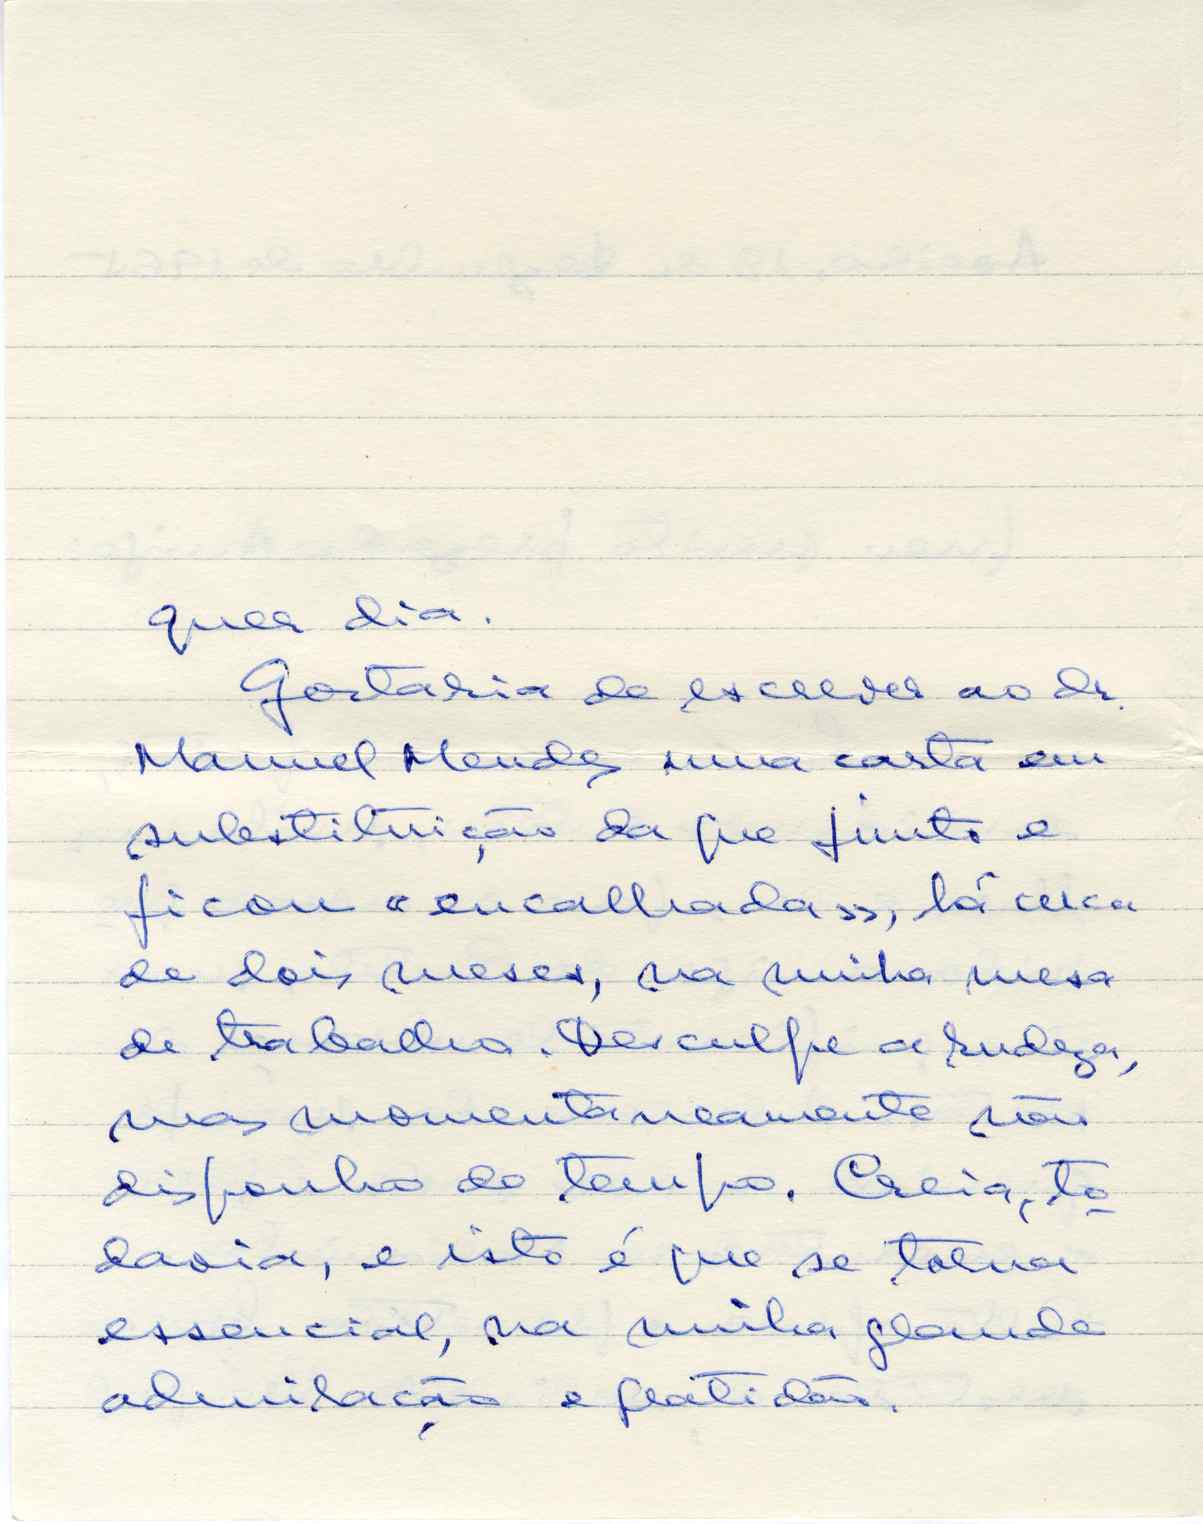 quer dia.
Gostaria de escrever ao dr.
Manuel Mendes uma carta em
substituição da que junto e
ficou «encalhada», há cerca
de dois meses, na minha mesa
de trabalho. Desculpe a rudeza,
mas momentaneamente não
disponho de tempo. Creia, to-
davia, e isto é que se torna
essencial, na minha grande
admiração e gratidão.